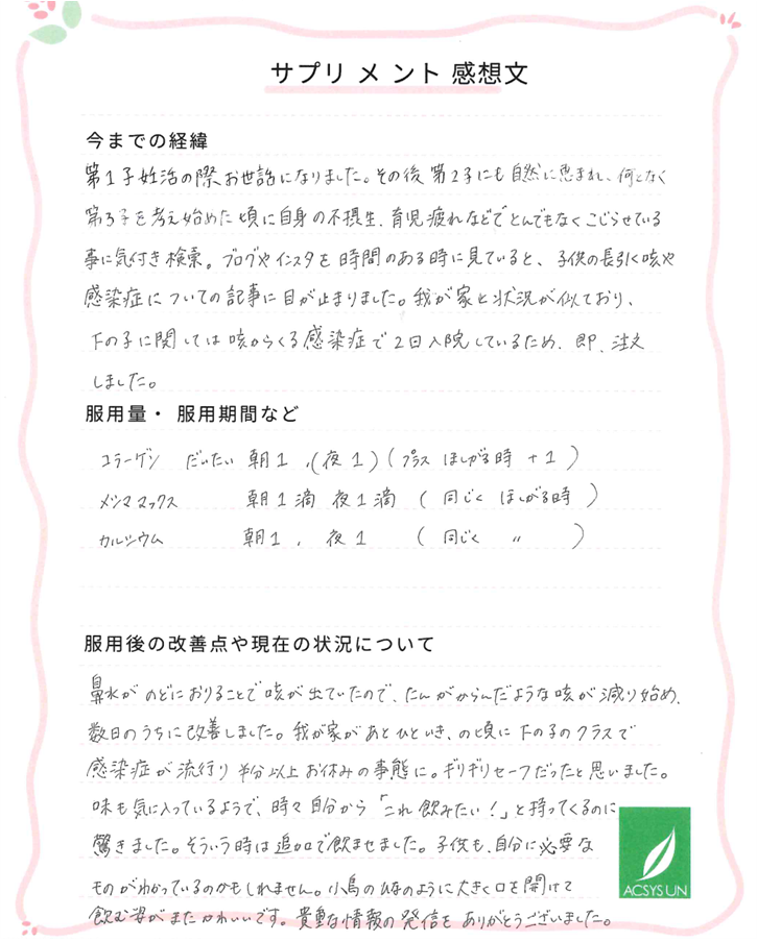 サプリ メ ント 感想文
今までの経緯
第1子妊活の際お世話になりました。その後 第2子にも自然に恵まれ、何となく
第3子を考え始めた頃に自身の不摂生、育児疲れなどでとんでもなくこじらせている
事に気付き検索。ブログやインスタを時間のある時に見ていると、子供の長引く咳や
感染症についての記事に目が止まりました。我が家と状況が似ており、
下の子に関しては咳からくる感染症で2回入院しているため、即、注文
しました。
服用量・ 服用期間など
コラーゲン だいたい 朝1 ,(夜1)(プラス ほしがる時 +1)
メシマ マックス 朝1滴 夜1滴 (同じく ほしがる時)
カルシウム 朝1 , 夜1 (同じく 〃 )
服用後の改善点や現在の状況について
鼻水がのどにおりることで咳が出ていたので、たんがからんだような咳が減り始め、
数日のうちに改善しました。我が家があとひといき、の頃に下の子のクラスで
感染症が流行り半分以上お休みの事態に。ギリギリセーフだったと思いました。
味も気に入っているようで、時々自分から「これ飲みたい!」と持ってくるのに
驚きました。そういう時は追加で飲ませました。子供も、自分に必要な
ものがわかっているのかもしれません。小鳥のひなのように大きく口を開けて
飲む姿がまたかわいいです。貴重な情報の発信をありがとうございました。
ACSYSUN